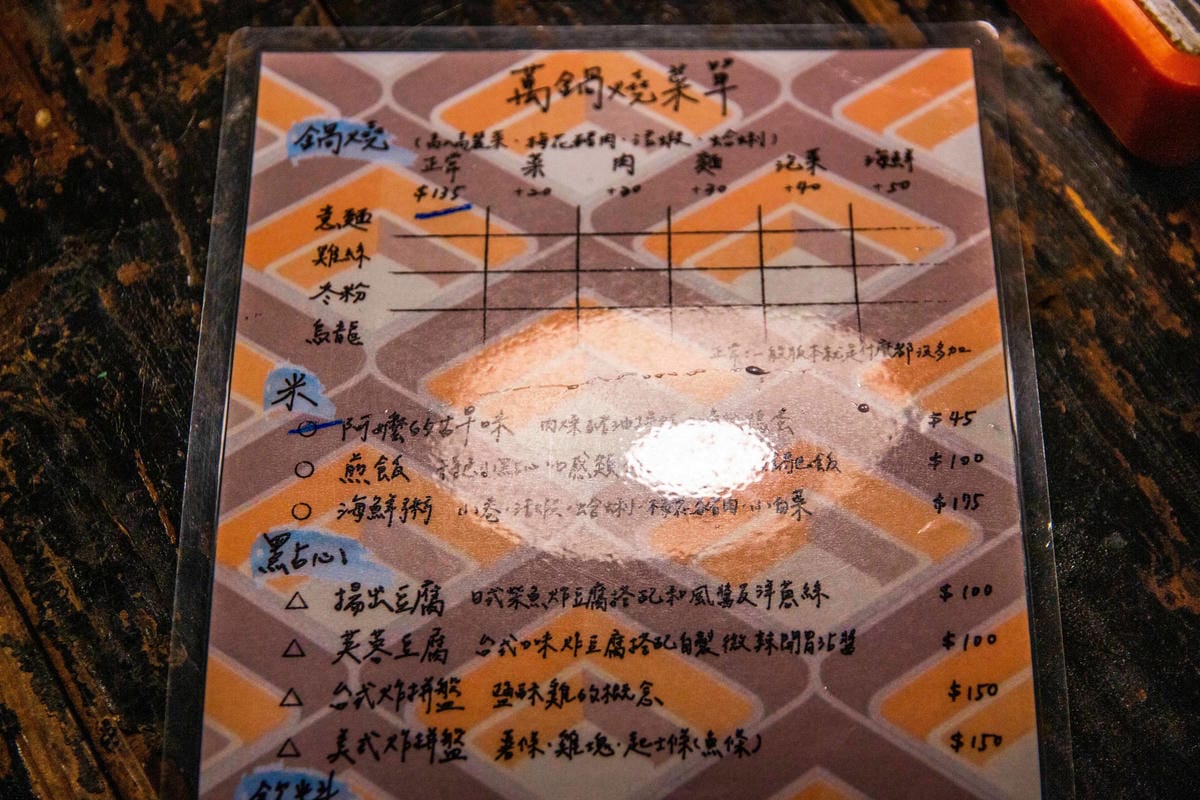 萬鍋燒菜單
鍋燒 (高麗菜、梅花豬肉、活蝦、蛤蜊)
正常 菜 肉 麵 泡菜 海鮮
$135 +20 +30 +30 +40 +50
意麵
雞絲
冬粉
烏龍
正常:一般版本就是什麼都沒多加
米
○ 阿嬤的古早味 肉燥豬油拌 $45
○ 煎飯 $100
○ 海鮮粥 小卷、活蝦、蛤蜊、梅花豬肉、小白菜 $175
點心
△ 揚出豆腐 日式柴魚炸豆腐搭配和風醬及洋蔥絲 $100
△ 芙蓉豆腐 台式口味炸豆腐搭配自製微辣開胃巧醬 $100
△ 台式炸拼盤 鹽酥雞的概念 $150
△ 美式炸拼盤 薯條、雞塊、起士條(魚條) $150
飲料